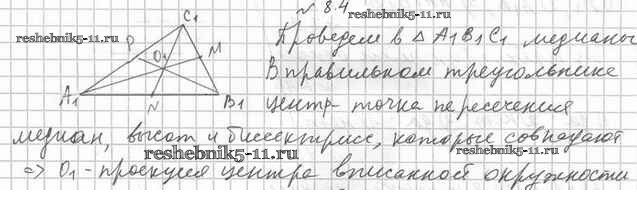 № 8.4
C₁
reshebnik5-11.ru
P
O₁
M
A₁
N
B₁
Проведем в Δ A₁B₁C₁ медианы
В правильном треугольнике
центр - точка пересечения
медиан, высот и биссектрис, которые совпадают
reshebnik5-11.ru
reshebnik5-11.ru
⇒ O₁ - проекция центра вписанной окружности